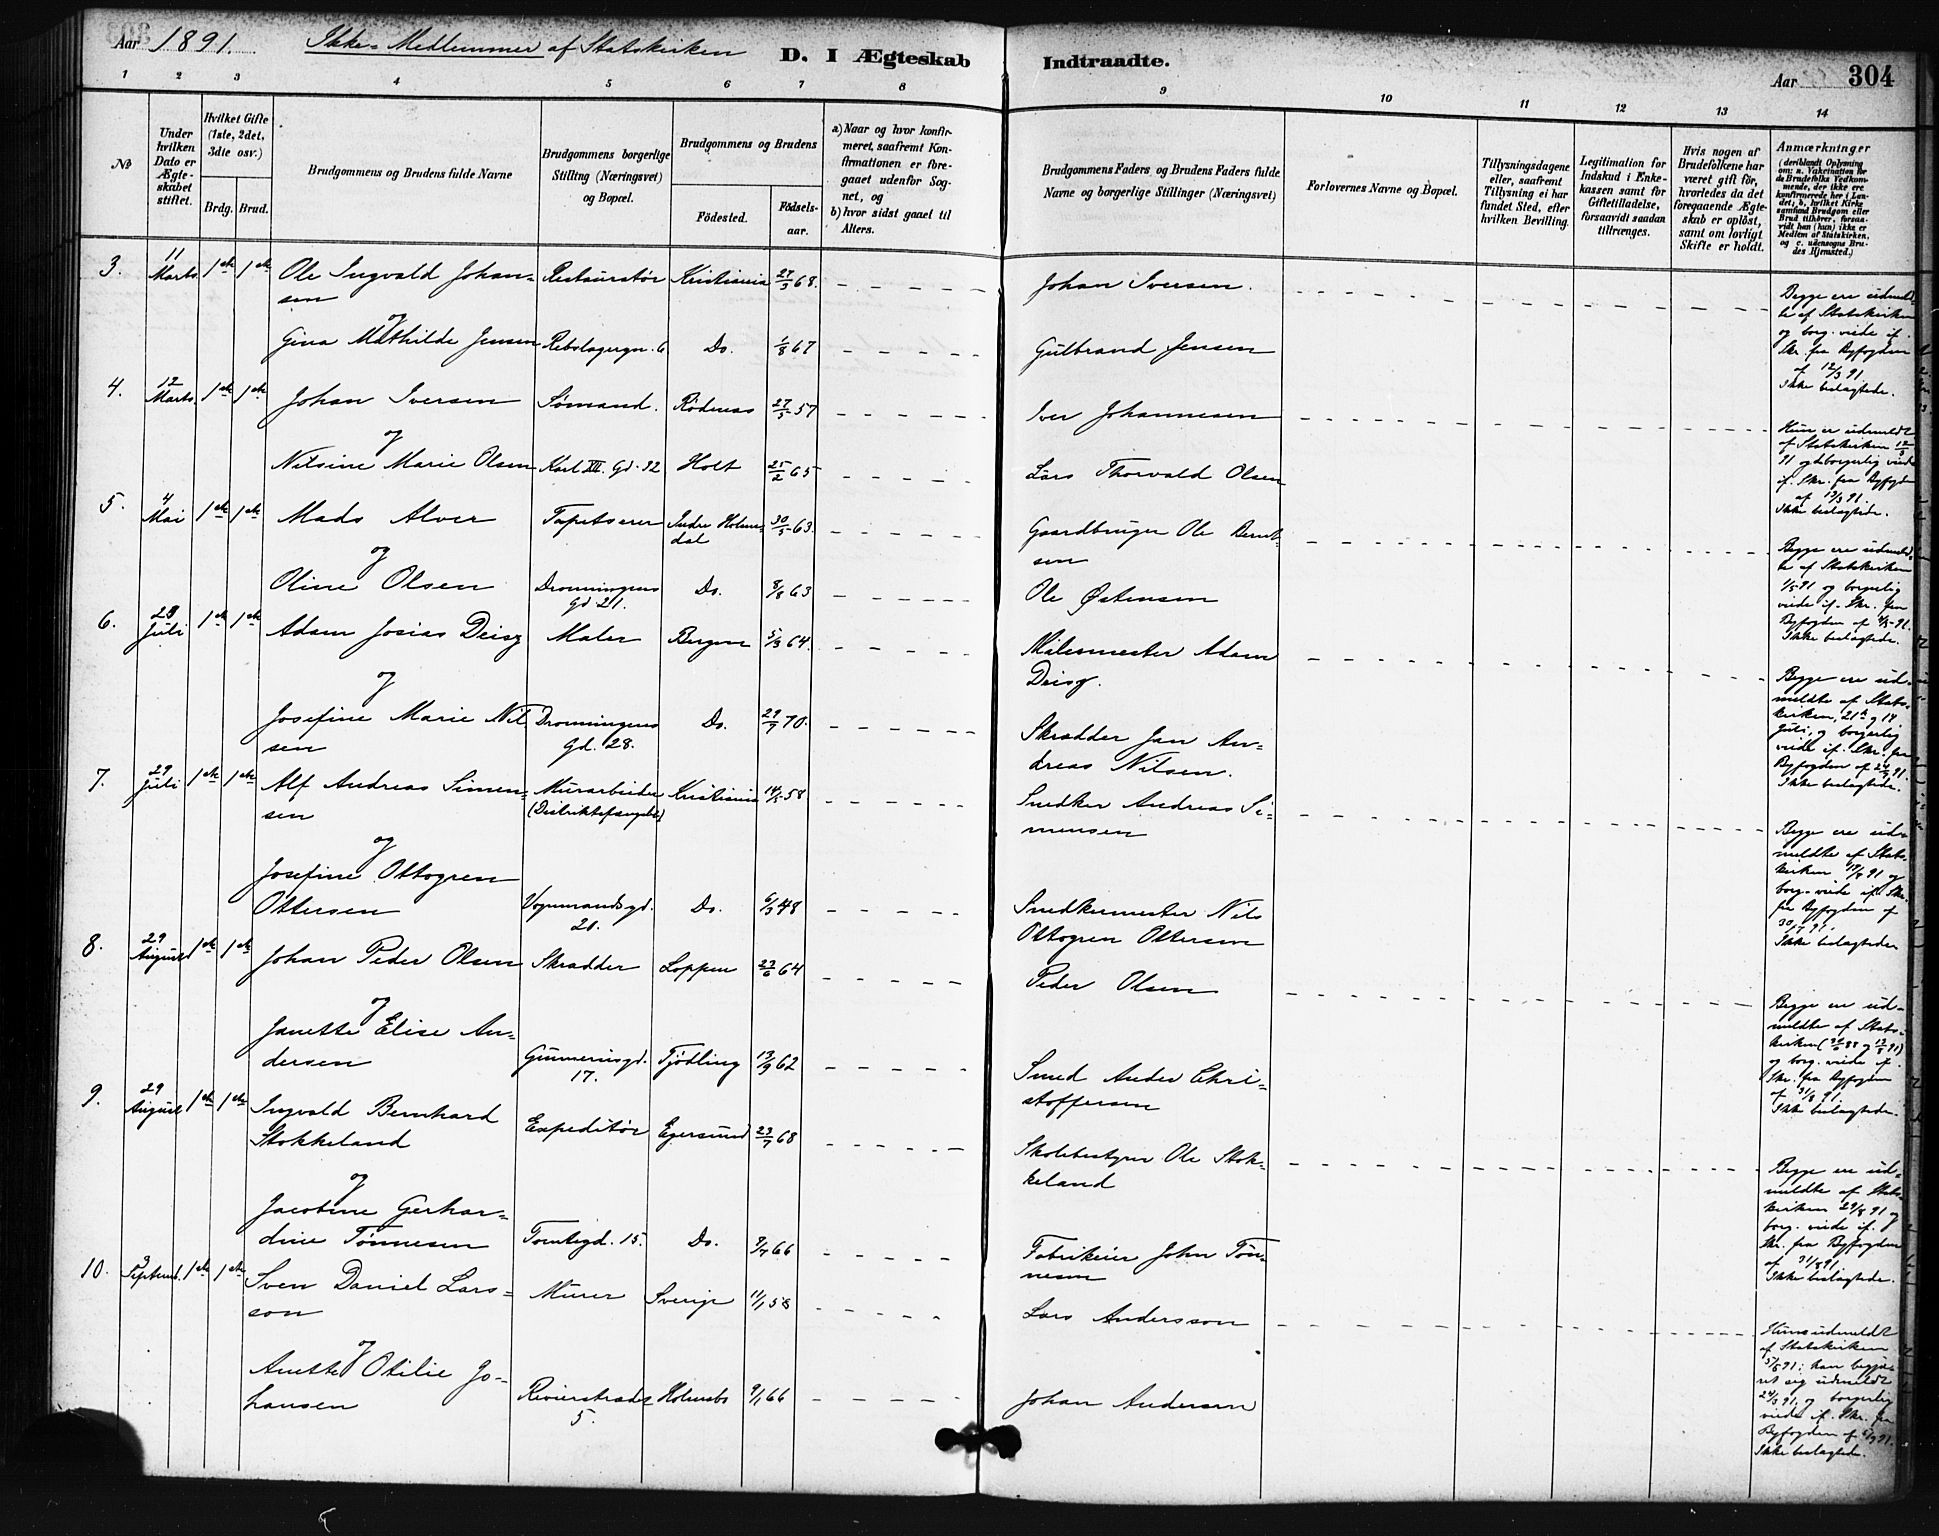 Aar 1891. Ikke-Medlemmer af Statskirken D. I Ægteskab Indtraadte. Aar 304
1 2 3 4 5 6 7 8 9 10 11 12 13 14
№
Under hvilken Dato er Ægteskabet stiftet.
Hvilket Gifte (1ste, 2det, 3die osv.)
Brdg. Brud.
Brudgommens og Brudens fulde Navne
Brudgommens borgerlige Stilling (Næringsvei) og Bopæl.
Brudgommens og Brudens
Födested. Födsels-aar.
a) Naar og hvor konfirmeret, saafremt Konfirmationen er foregaaet udenfor Sognet, og
b) hvor sidst gaaet til Alters.
Brudgommens Faders og Brudens Faders fulde Navne og borgerlige Stillinger (Næringsvei)
Forlovernes Navne og Bopæl.
Tillysningsdagene eller, saafremt Tillysning ei har fundet Sted, efter hvilken Bevilling.
Legitimation for Indskud i Enkekassen samt for Giftetilladelse, forsaavidt saadan tiltrænges.
Hvis nogen af Brudefolkene har været gift för, hvorledes da det foregaaende Ægteskab er oplöst, samt om lovligt Skifte er holdt.
Anmærkninger
(deriblandt Oplysning om: a. Vakcination for de Brudefolks Vedkommende, der ikke ere konfirmerede her i Landet; b. hvilket Kirkesamfund Brudgom eller Brud tilhörer, forsaavidt han (hun) ikke er Medlem af Statskirken, og c. udensogns Brudes Hjemsted.)
3. 11 Marts 1ste 1ste Ole Ingvald Johansen Restauratør Kristiania 27/5 68. Johan Iversen.
og
Gina Mathilde Jensen Rebslagergn. 6 Do. 1/8 67 Gulbrand Jensen
Begge ere udmeldte af Statskirken og borg. viede if. Skr. fra Byfogden af 12/3 91. Ikke beslægtede.
4. 12 Marts 1ste 1ste Johan Iversen Sømand. Rødenæs 27/5 57 Iver Johannesen
og
Nilsine Marie Olsen Karl XII. Gd. 32 Holt 25/2 65 Lars Thorvald Olsen
Hun er udmeldt af Statskirken 12/3 91 og borgerlig viede if. Skr. fra Byfogden af 13/3 91. Ikke beslægtede.
5. 4 Mai 1ste 1ste Mads Alver Tapetserer Indre Holmedal 30/5 63. Gaardbruger Ole Berntsen
og
Oline Olsen Dronningens Gd 21. Do. 8/8 63 Ole Østensen
Begge ere udmeldte af Statskirken 1/5 91 og borgerlig viede if. Skr. fra Byfogden af 4/5 91. Ikke beslægtede.
6. 28 Juli 1ste 1ste Adam Josias Deisz Maler Bergen 5/3 64. Malermester Adam Deisz.
og
Josefine Marie Nilsen Dronningens Gd. 28. Do. 29/7 70. Skrædder Jan Andreas Nilsen.
Begge ere udmeldte af Statskirken, 21de og 17. Juli, og borgerlig viede if. Skr. fra Byfogden af 91. Ikke beslægtede.
7. 29 Juli 1ste 1ste Alf Andreas Simensen Murarbeider (Distriktsfængslet) Kristiania 14/5 58 Snedker Andreas Simensen
og
Josefine Ottogren Ottersen Vognmandsgd. 20. Do. 6/3 48 Snedkermester Nils Ottogren Ottersen
Begge ere udmeldte af Statskirken 91 og borg. viede if. Skr. fra Byfogden af 30/7 91. Ikke beslægtede
8. 29 August 1ste 1ste Johan Peder Olsen Skrædder Loppen 23/6 64 Peder Olsen
og
Janette Elise Andersen Gunnerusgd. 17. Tjødling 13/9 62 Smed Anders Christoffersen
Begge ere udmeldte af Statskirken og borg. viede if. Skr. fra Byfogden af 31/8 91. Ikke beslægtede.
9. 29 August 1ste 1ste Ingvald Bernhard Stokkeland Expeditør Egersund 23/7 68 Skolebestyrer Ole Stokkeland
og
Jacobine Gerhardine Tønnesen Tomtegd. 15. Do. 9/7 66 Fabrikeier John Tønnesen
Begge ere udmeldte af Statskirken 29/8 91 og borg. viede if. Skr. fra Byfogden af 31/8 91. Ikke beslægtede.
10. 3 Septemb. 1ste 1ste Sven Daniel Larsson Murer Sverige 11/1 58 Lars Andersson
og
Anette Otilie Johansen Revierstrædet 5. Holmsbo 9/1 66 Johan Andersen
Hun udmeldt af Statskirken 91; han begjæret sig udmeldt 91, og borgerlig viede if. Skr. fra Byfogden af 91. Ikke beslægtede.